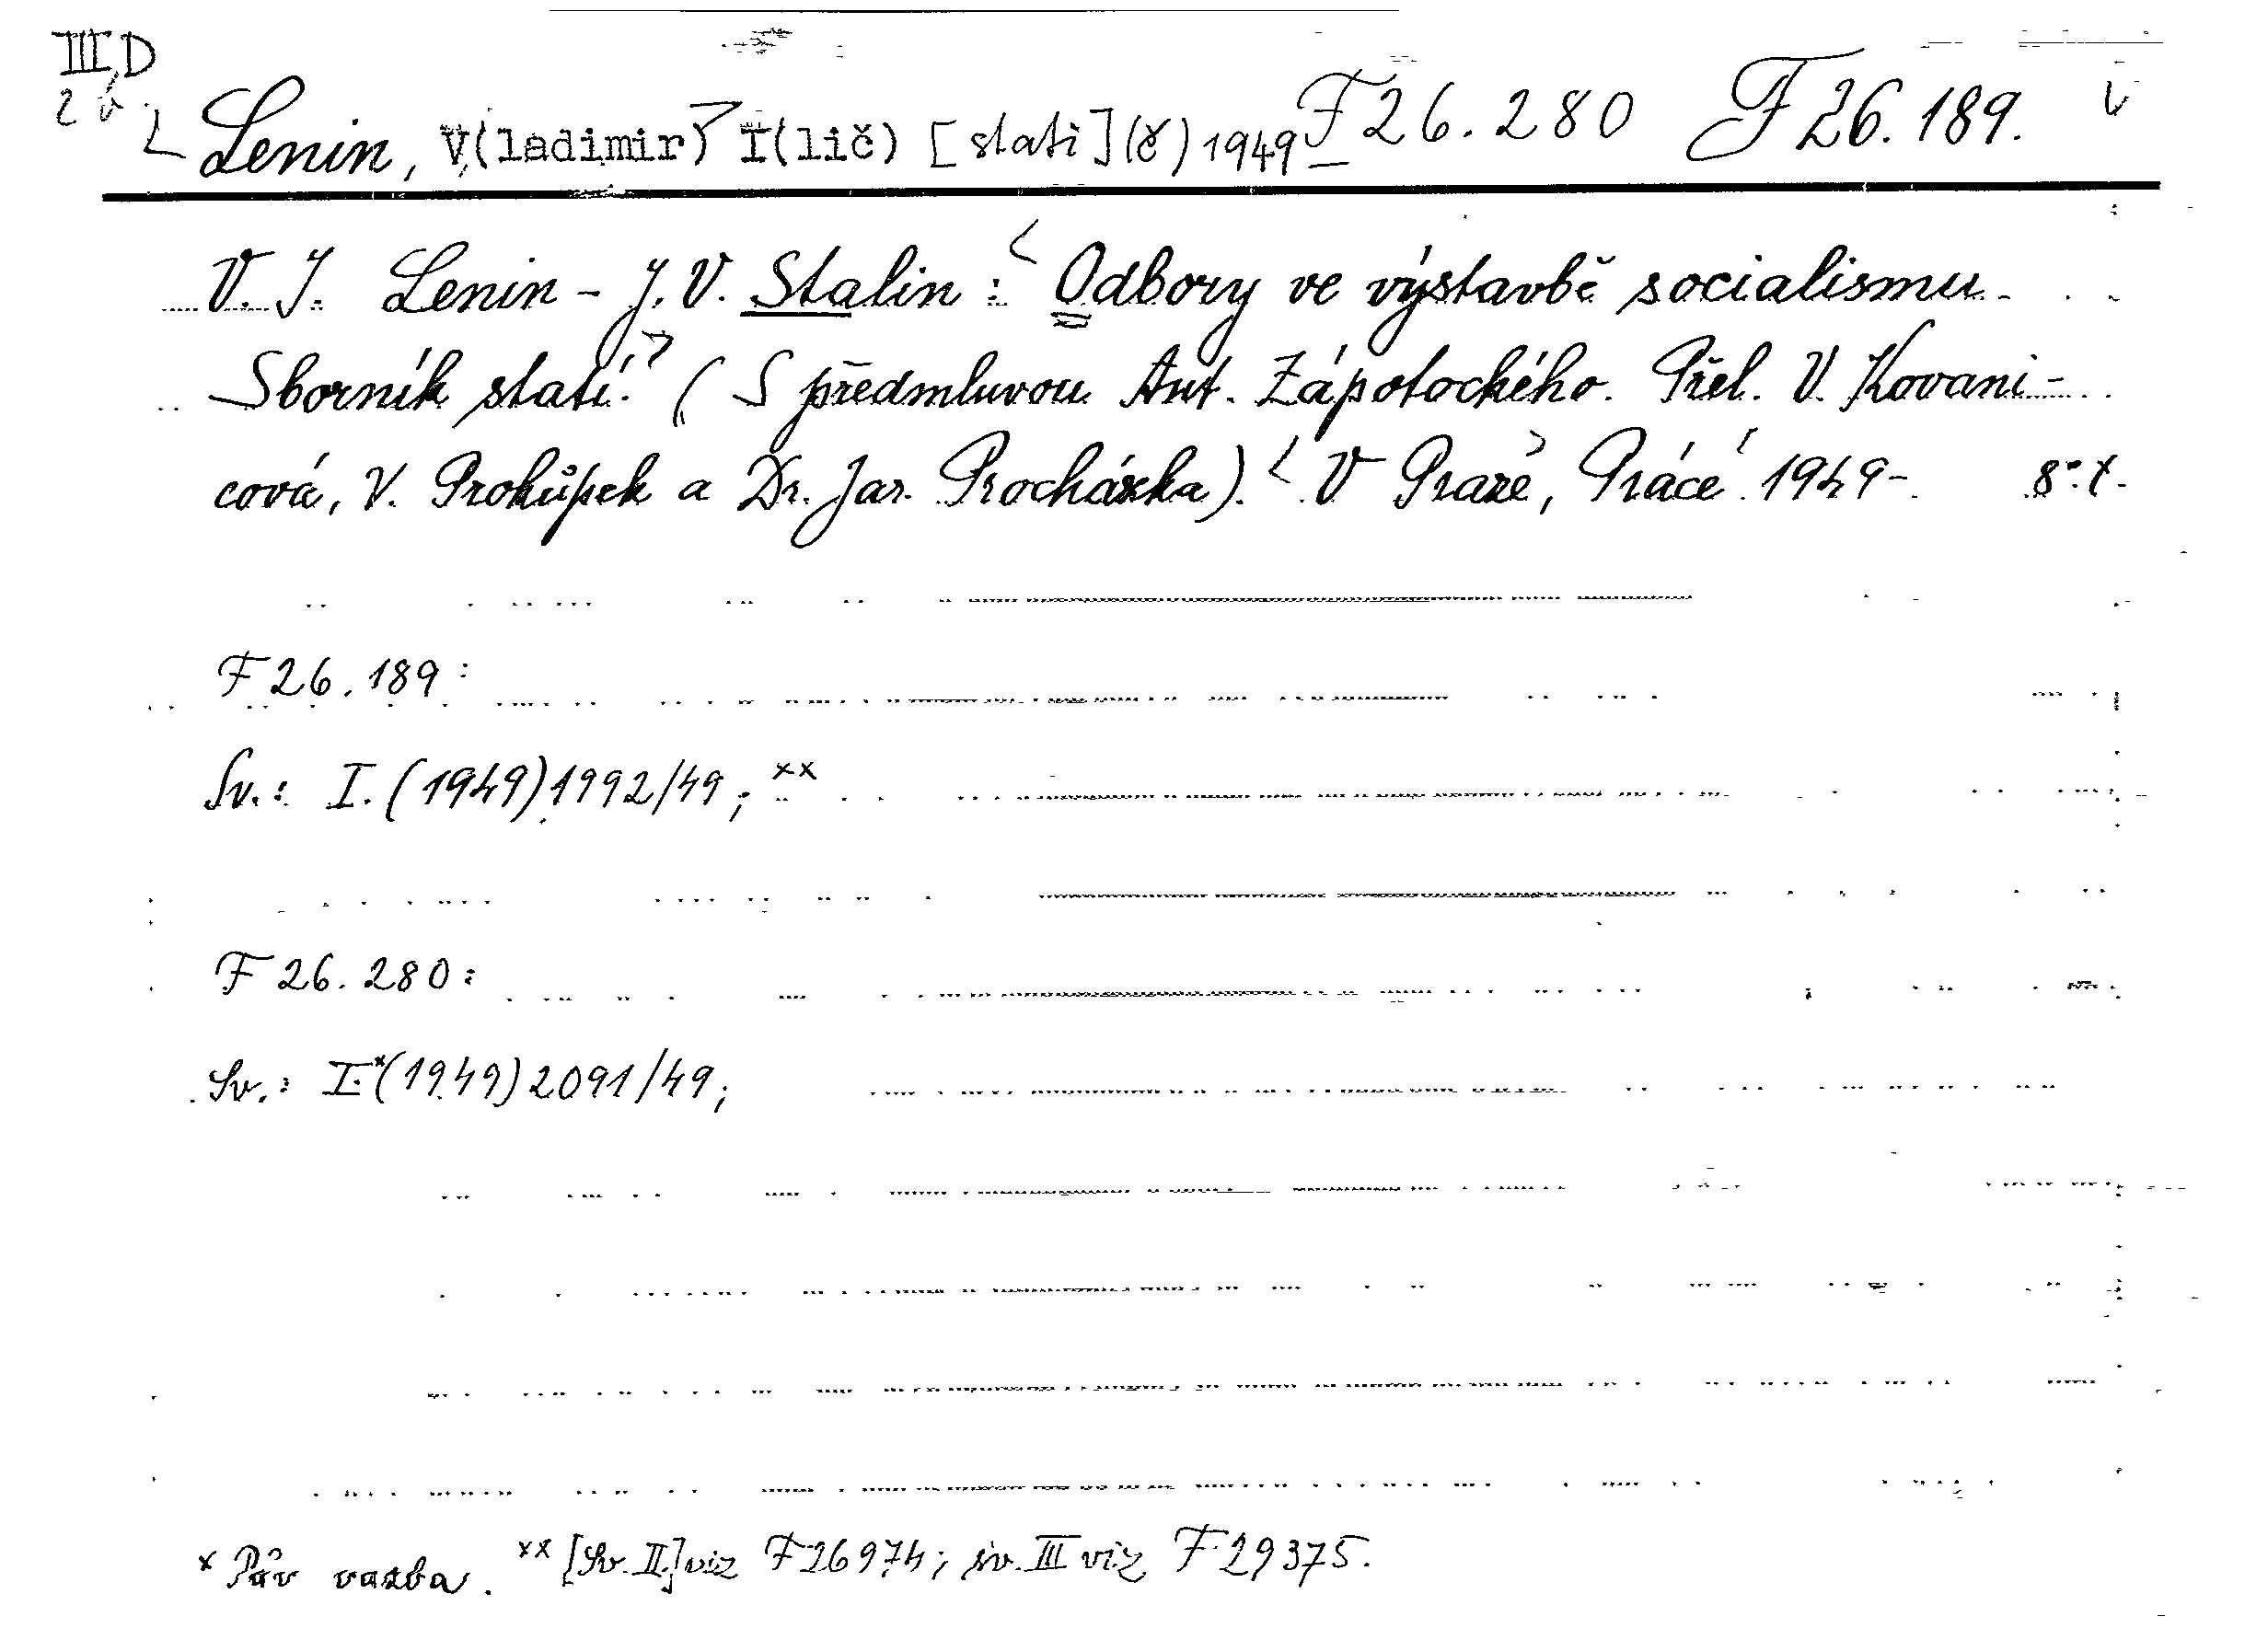 III D
Lenin, V(ladimir) I(lič) [stati] (č) 1949 F 26.280 F 26.189.
V. J. Lenin - J. V. Stalin: Odbory ve výstavbě socialismu.
Sborník statí. (S předmluvou Ant. Zápotockého. Přel. V. Kovani-
cová, V. Prokůpek a Dr. Jar. Procházka). V Praze, Práce 1949-. 8°.
F 26.189:
Sv.: I. (1949) 1992/49; xx
F 26.280:
Sv.: I.x (1949) 2091/49;
x Pův vazba. xx [Sv. II.] viz F 26974; sv. III viz F 29375.